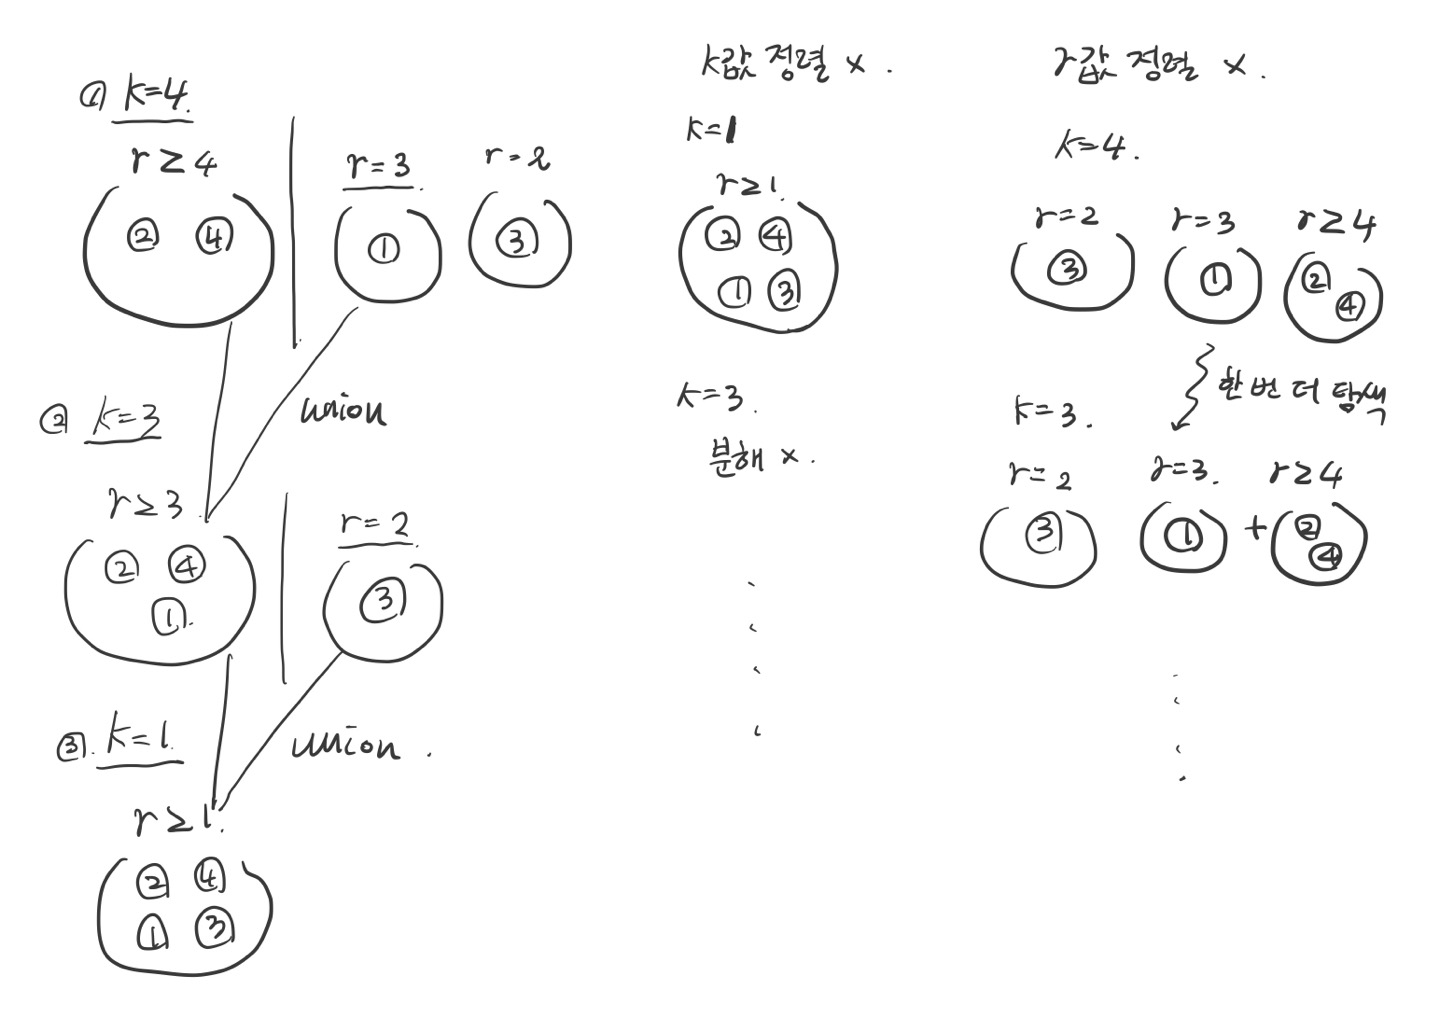 ① k=4.
r ≥ 4
r=3
r=2
② ④
①
③
union
② k=3
r ≥ 3
r=2
② ④
①
③
union.
③. k=1
r ≥ 1.
② ④
① ③
k값 정렬 x.
k=1
r ≥ 1.
② ④
① ③
k=3.
분해 x.
r값 정렬 x.
k=4.
r=2
r=3
r ≥ 4
③
①
②
④
한 번 더 탐색
k=3.
r=2
r=3.
r ≥ 4
③
①
+
②
④